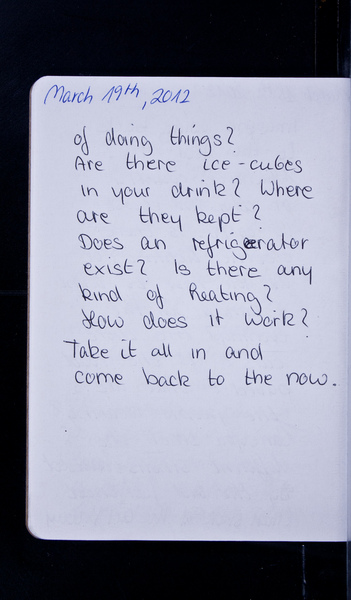 March 19th, 2012
of doing things?
Are there ice-cubes
in your drink? Where
are they kept?
Does an refrigerator
exist? Is there any
kind of heating?
How does it work?
Take it all in and
come back to the now.